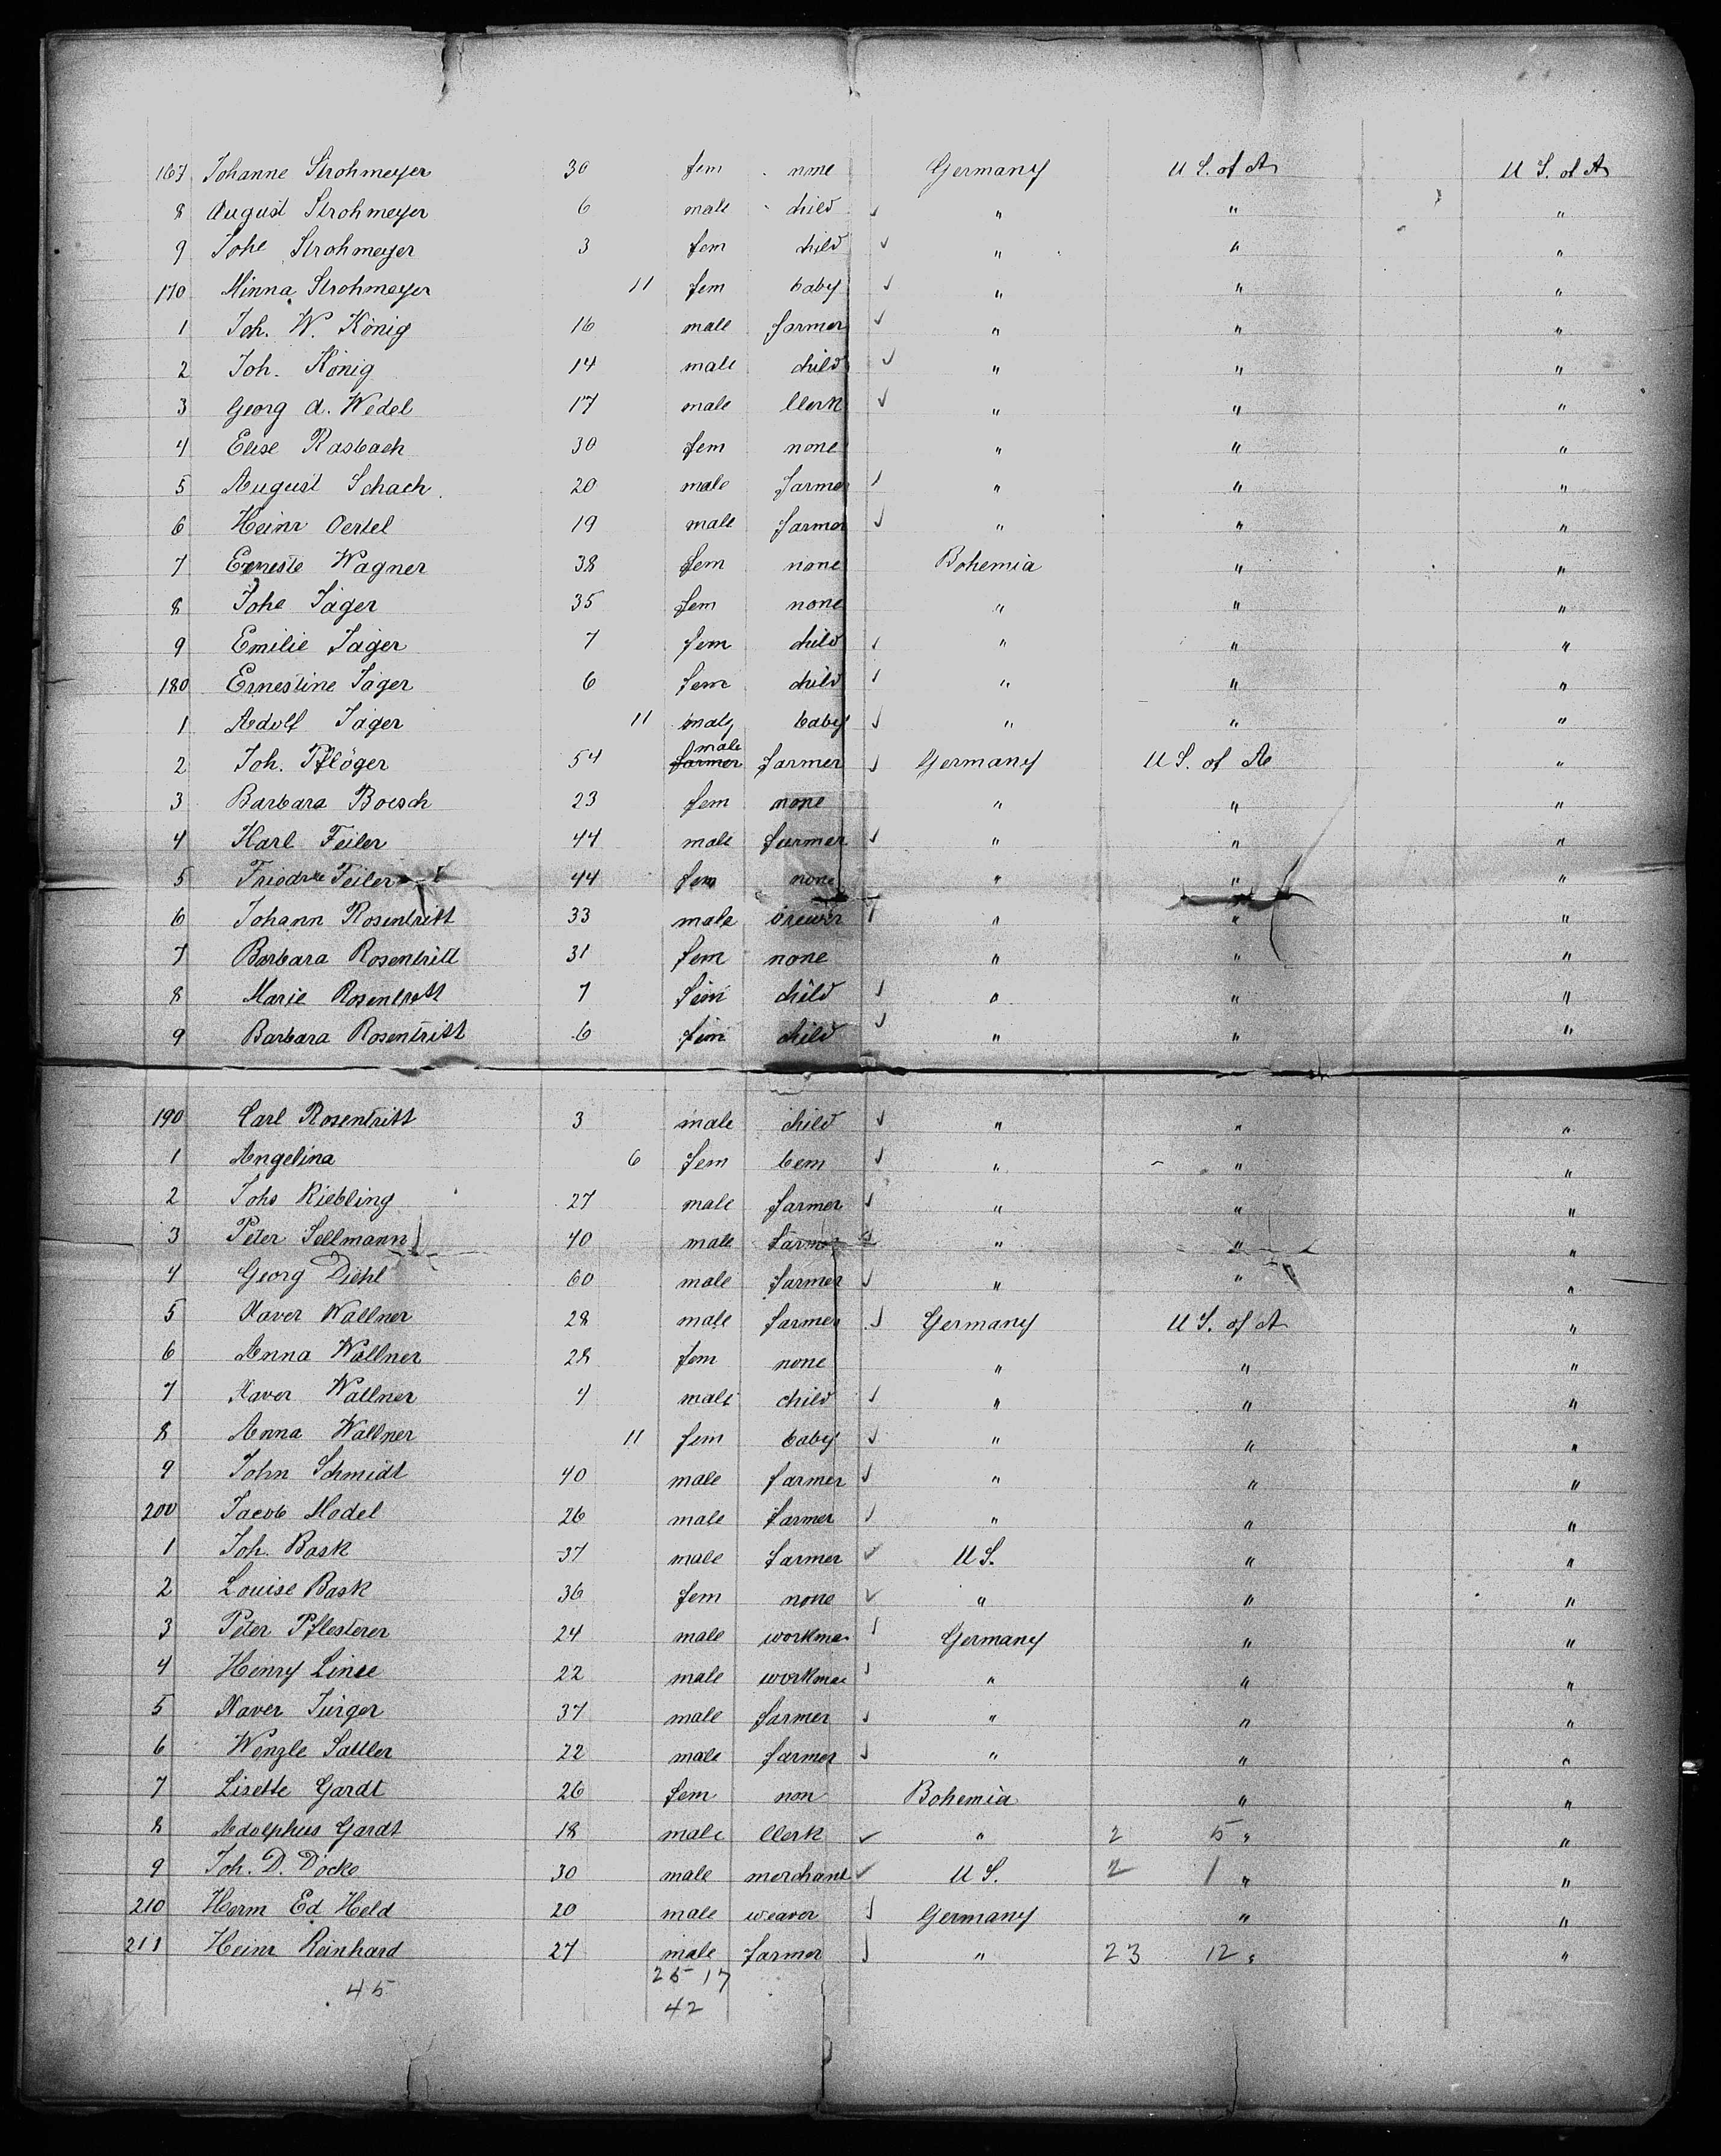 167 Johanne Strohmeyer 30 fem none Germany U S. of A U S. of A
8 August Strohmeyer 6 male child " " "
9 Johe Strohmeyer 3 fem child " " "
170 Minna Strohmeyer 11 fem baby " " "
1 Joh. W. König 16 male farmer " " "
2 Joh. König 14 male child " " "
3 Georg A. Wedel 17 male Clerk " " "
4 Elise Rasbach 30 fem none " " "
5 August Schach 20 male farmer " " "
6 Heinr Oertel 19 male farmer " " "
7 Erneste Wagner 38 fem none Bohemia " "
8 Johe Jäger 35 fem none " " "
9 Emilie Jäger 7 fem child " " "
180 Ernestine Jäger 6 fem child " " "
1 Adolf Jäger 11 male baby " " "
2 Joh. Pflöger 54 farmer male farmer Germany U S. of A "
3 Barbara Boesch 23 fem none " " "
4 Karl Feiler 44 male farmer " " "
5 Friedrke Feiler 44 fem none " " "
6 Johann Rosentritt 33 male brewer " " "
7 Barbara Rosentritt 31 fem none " " "
8 Marie Rosentritt 7 fem child " " "
9 Barbara Rosentritt 6 fem child " " "
190 Carl Rosentritt 3 male child " " "
1 Angelina 6 fem " " "
2 Johs Kiebling 27 male farmer " " "
3 Peter Sellmann 40 male farmer " " "
4 Georg Diehl 60 male farmer " " "
5 Xaver Wallner 28 male farmer Germany U S. of A "
6 Anna Wallner 28 fem none " " "
7 Xaver Wallner 4 male child " " "
8 Anna Wallner 11 fem baby " " "
9 John Schmidt 40 male farmer " " "
200 Jacob Model 26 male farmer " " "
1 Joh. Bask 37 male farmer U S. " "
2 Louise Bask 36 fem none " " "
3 Peter Pflesterer 24 male workman Germany " "
4 Heinry Linee 22 male workman " " "
5 Xaver Jurger 37 male farmer " " "
6 Wenzle Sattler 22 male farmer " " "
7 Lisette Gardt 26 fem non Bohemia " "
8 Adolphus Gardt 18 male Clerk " 2 5 " "
9 Joh. D. Docke 30 male merchant U S. 2 1 " "
210 Herm Ed Held 20 male weaver Germany " "
211 Heinr Reinhard 27 male farmer " 23 12 " "
45 25 17
42